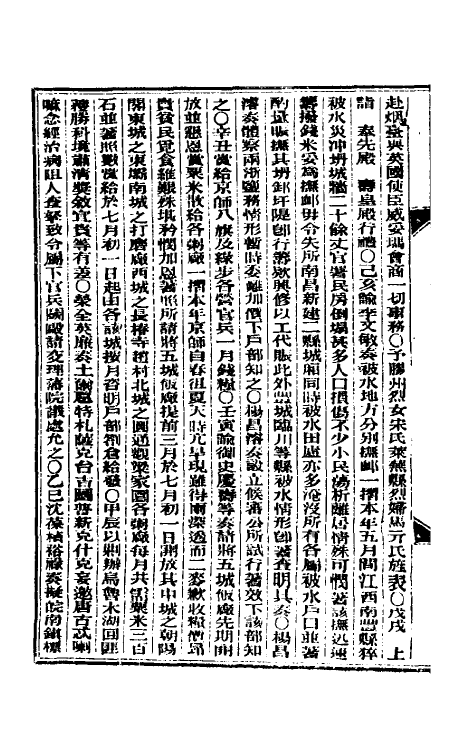 赴烟臺與英國使臣威妥瑪會商一切事務○予膠州烈女宋氏萊蕪縣烈婦馬亓氏旌表○戊戌　上
詣　奉先殿　壽皇殿行禮○己亥諭李文敏奏被水地方分別撫卹一摺本年五月間江西南豐縣猝
被水災沖坍城牆二十餘丈官署民房倒塌甚多人口損傷不少小民蕩析離居情殊可憫著該撫迅速
籌撥錢米妥為撫卹毋令失所南昌新建二縣城廂同時被水田廬亦多淹沒所有各屬被水戶口並著
酌量賑撫其坍卸圩隄卽行籌款興修以工代賑此外豐城臨川等縣被水情形卽著查明具奏○楊昌
濬奏體察兩浙鹽務情形暫時委難加價下戶部知之○楊昌濬奏設立候審公所試行著效下該部知
之○辛丑賞給京師八旗及綠步各營官兵一月錢糧○壬寅諭御史慶壽等奏請將五城飯廠先期開
放並懇恩賞粟米散給各粥廠一摺本年京師自春徂夏天時亢旱現雖得雨深透而二麥歉收糧價昂
貴貧民覓食維艱殊堪矜憫加恩著照所請將五城飯廠提前三月於七月初一日開放其中城之朝陽
閣東城之東壩南城之打磨廠西城之長椿寺趙村北城之圓通觀梁家園各粥廠每月共需粟米三百
石並著照數賞給於七月初一日起由各該城按月咨明戶部劄倉給發○甲辰以剿辦烏魯木湖回匪
獲勝科境肅清獎敘官貴等有差○榮全英廉奏土爾扈特札薩克台吉圖普新克什克妄邀唐古忒喇
嘛念經治病阻人查拏致令屬下官兵鬬毆請交理藩院議處允之○乙巳沈葆楨裕祿奏擬皖南鎮標